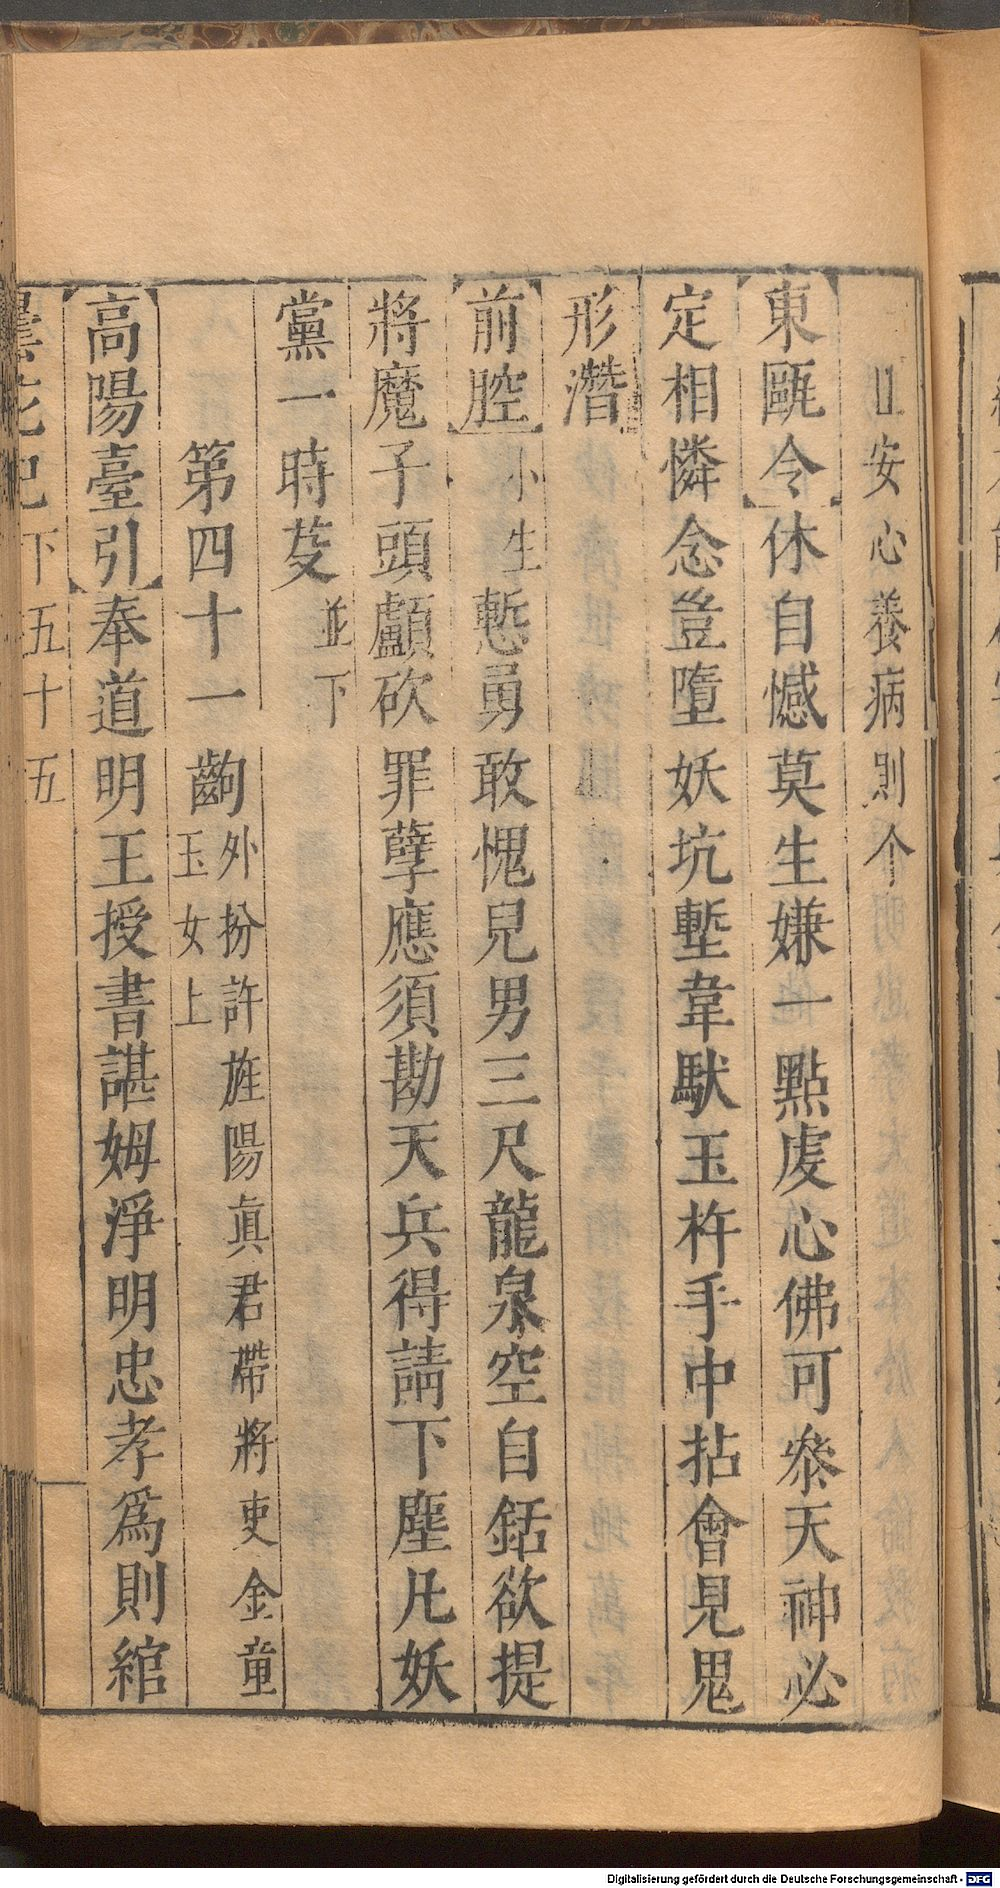 且安心養病則个
【東甌令】休自憾莫生嫌一點虔心佛可參天神必
定相憐念豈墮妖坑塹韋馱玉杵手中拈會見鬼
形潛
【前腔】小生慙勇敢愧兒男三尺龍泉空自銛欲提
將魔子頭顱砍罪孽應須勘天兵得請下塵凡妖
黨一時芟並下
第四十一齣外扮許旌陽眞君帶將吏金童玉女上
【高陽臺引】奉道明王授書諶姆淨明忠孝爲則綰
曇花記 下 五十五
Digitalisierung gefördert durch die Deutsche Forschungsgemeinschaft - DFG